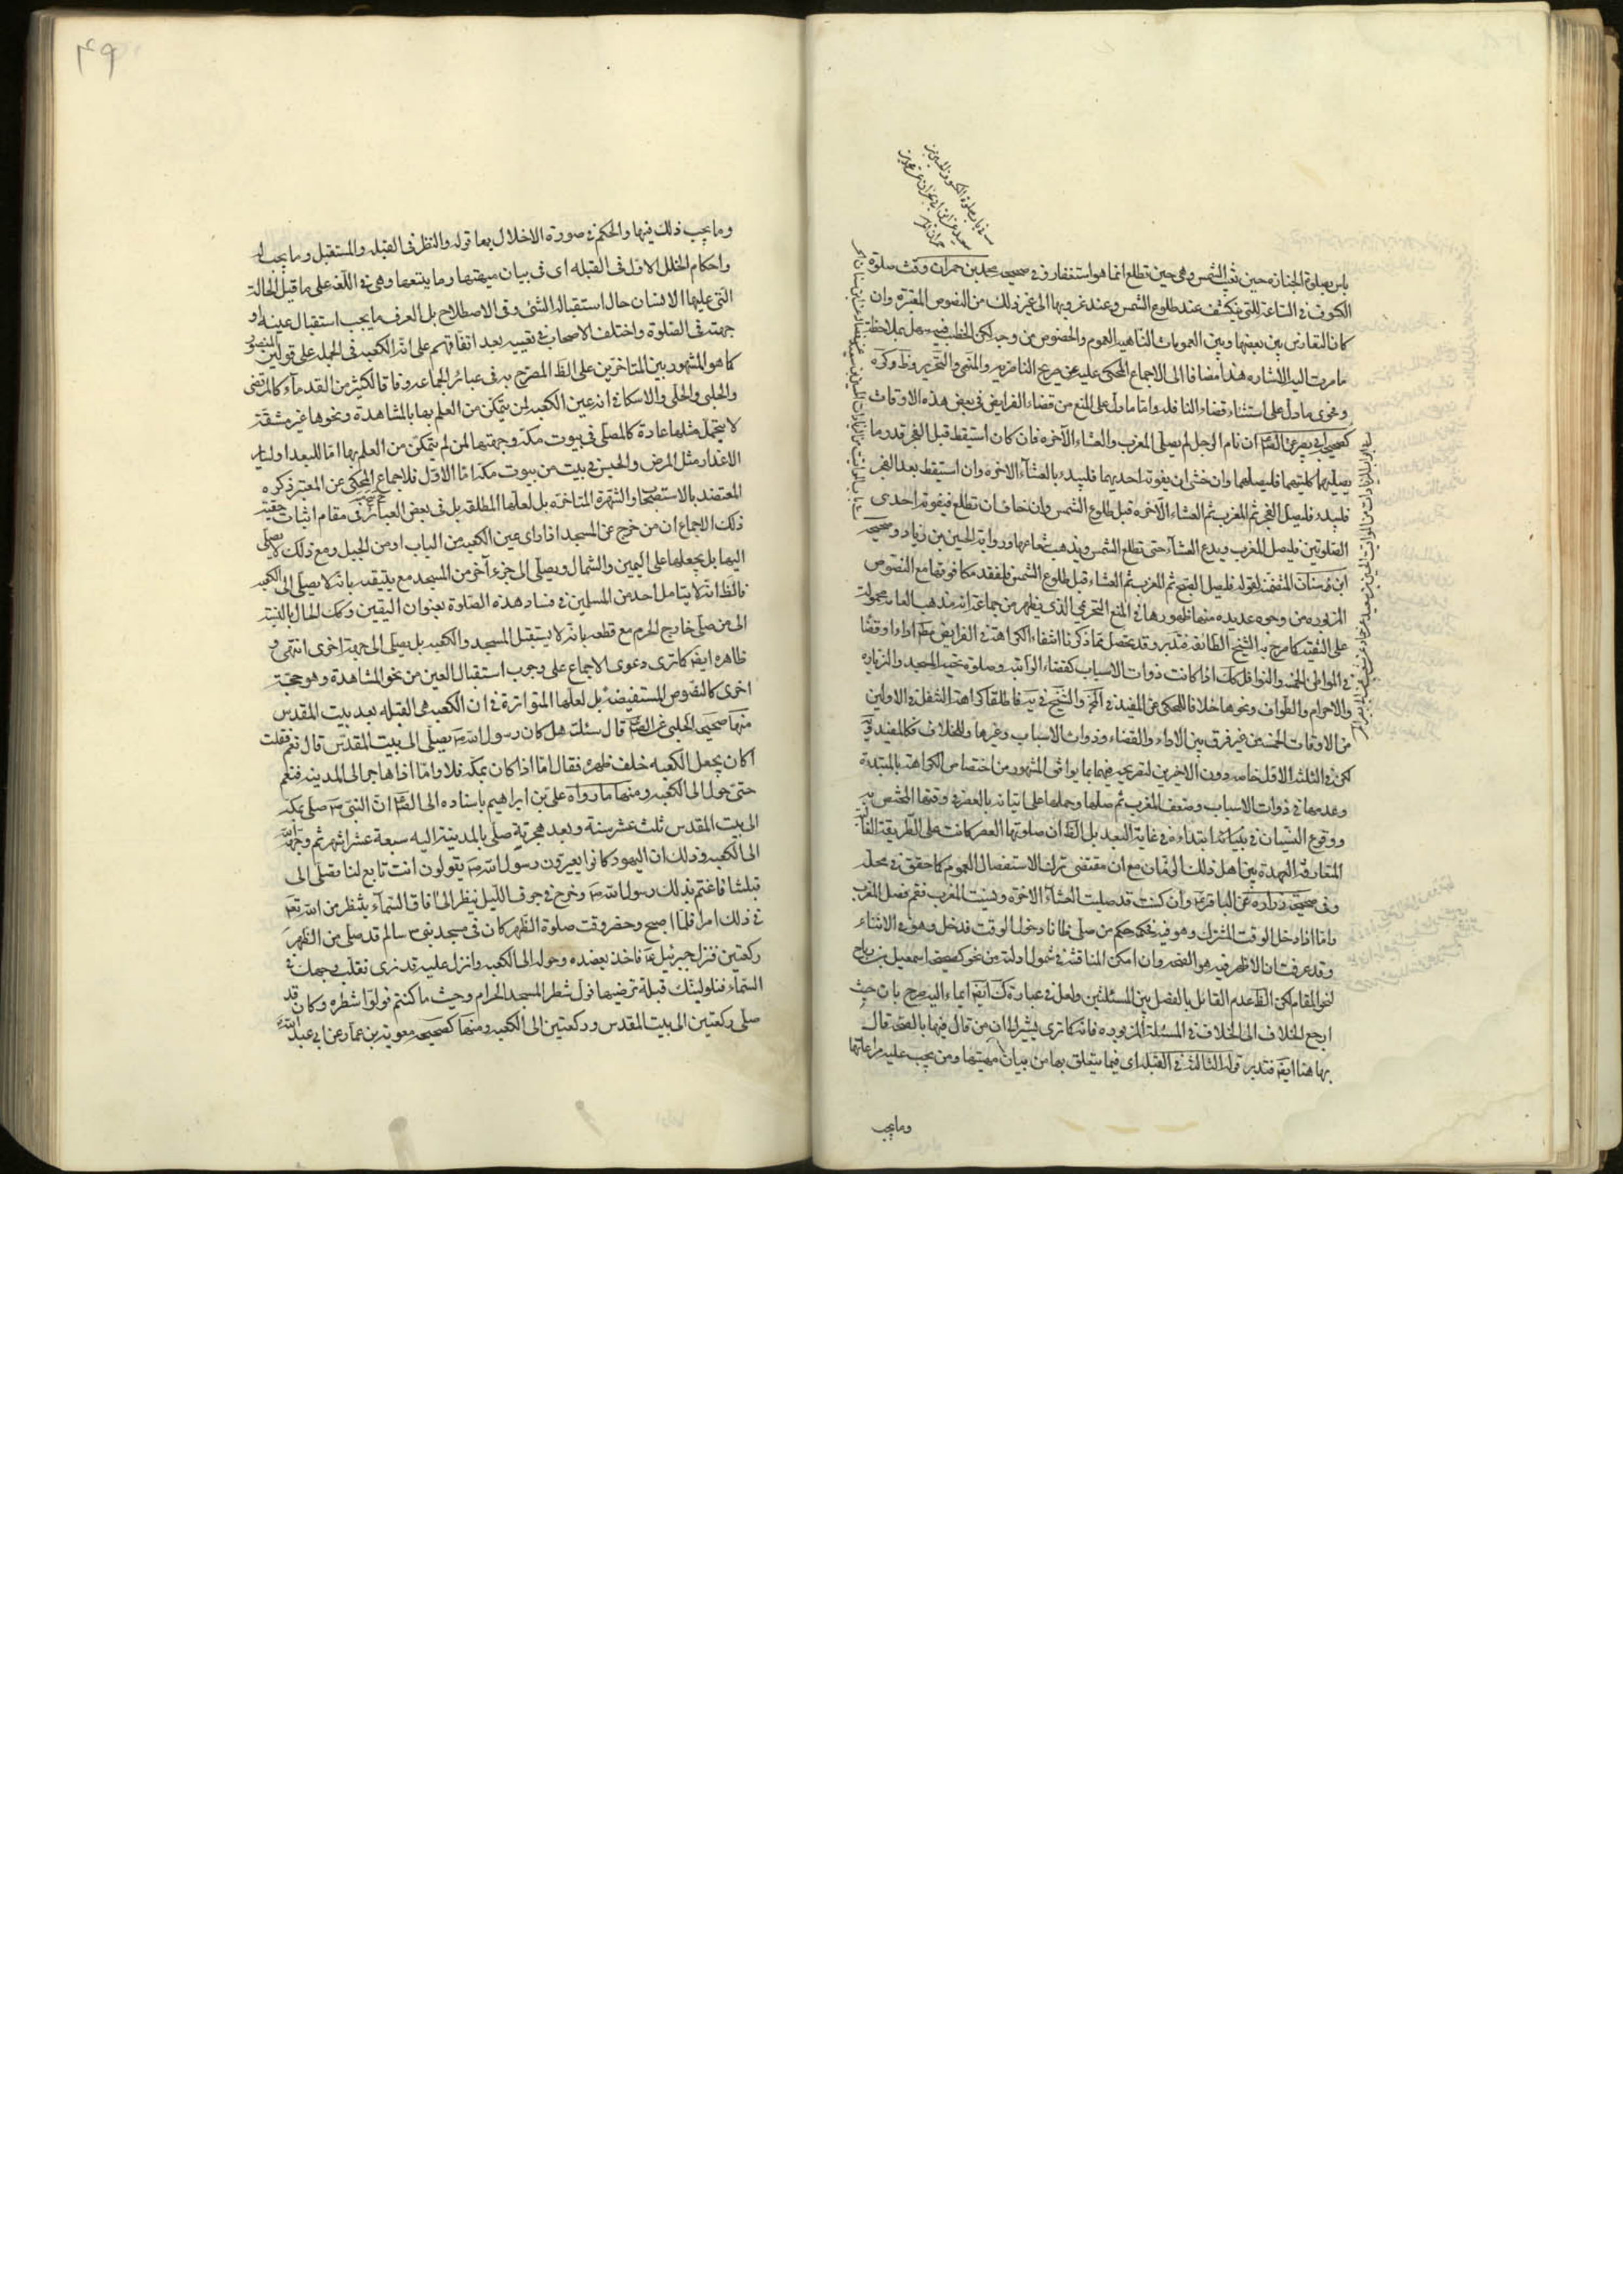 باس بصلوة الجنازه حين تغيب الشمس وحين تطلع انما هو استغفار وفى صحيحه محمد بن حمران وقت صلوة
الكسوف فى الساعة التى تنكسف عند طلوع الشمس وعند غروبها الى غير ذلك من النصوص المعتبره وان
كان التعارض بين بعضها وبين العمومات الناهيه العموم والخصوص من وجه لكن الخطب فيه سهل بملاحظة
ما مرت اليه الاشاره هذا مضافا الى الاجماع المحكى عليه عن صريح الناصريه والمنتهى والتحرير وظ وكره
وفحوى ما دل على استثناء قضاء النافله واما ما دل على المنع من قضاء الفرايض فى بعض هذه الاوقات
كصحيح ابى بصير عن الصم ان نام الرجل لم يصلى المغرب والعشاء الآخره فان كان استيقظ قبل الفجر قدر ما
يصليهما كلتيهما فليصلهما وان خشى ان يفوته احديهما فليبدء بالعشاء الاخره وان استيقظ بعد الفجر
فليبدء فليصل الفجر ثم المغرب ثم العشاء الآخره قبل طلوع الشمس وان خاف ان تطلع فيفوته احدى
الصلوتين فليصل المغرب ويدع العشاء حتى تطلع الشمس ويذهب شعاعها ورواية الحسين بن زياد وصحيحه
ابن سنان المتضمنه لقوله فليصل الصبح ثم المغرب ثم العشاء قبل طلوع الشمس فلفقد مكافوتها مع النصوص
المزبوره من وجوه عديده منها ظهورها فى المنع التحريمى الذى يظهر من جماعة انه مذهب العامه محمولة
على التقيه كما صرح به الشيخ الطائفه فتدبر وقد يحصل مما ذكرنا انتفاء الكراهة فى الفرايض مطم اداء او قضا
فى المواطن الخمسه والنوافل كك اذا كانت ذوات الاسباب كقضاء الراتبه وصلوة تحيه المسجد والزياره
والاحرام والطواف ونحوها خلافا للمحكى عن المفيد فى
من الاوقات الخمسه من غير فرق بين الاداء والقضاء وذوات الاسباب وغيرها وللخلاف كالمفيد
لكن فى الثلثه الاول خاصه دون الاخرين لتصريحه فيهما بما يوافق المشهور من اختصاص الكراهة بالمبتدءة
وعدمها فى ذوات الاسباب وضعف المغرب ثم صلها وحملها على اتيانه بالعصر فى وقتها المختص به
ووقوع النسيان فى ابتداءه فى غاية البعد بل الظ ان صلوتها العصر كانت على الطريقة
المتعارفة المعهدة بين اهل ذلك الزمان مع ان مقتضى ترك الاستفصال العموم كما حقق فى محله
وفى صحيحة زراره عن الباقر وان كنت قد صليت العشاء الاخره ونسيت المغرب فقم فصل المغرب
واما اذا دخل الوقت المشترك وهو فيه فحكمه حكم من صلى ظانا دخول الوقت فدخل وهو فى الاثناء
وقد عرفت ان الاظهر فيه هو الصحه وان امكن المناقشة فى شمول ادلته من نحو كصحيح اسمعيل بن رياح
لنحو المقام لكن الظ عدم القائل بالفصل بين المسئلتين ولعل فى عبارة كك ايضا ايماء اليه صرح بان حيث
ارجع الخلاف الى الخلاف فى المسئلة المزبوره فانه كما ترى يشير الى ان من قال فيها بالصحه قال
بها هنا ايضا فتدبر قوله الثالث فى القبله اى فيما يتعلق بها من بيان مهيتها ومن يجب عليه مراعاتها
وما يجب
٤٩
وما يجب ذلك فيها والحكم فى صورة الاخلال بها قوله والنظر فى القبله والمستقبل وما يجب له
واحكام الخلل الاول فى القبله اى فى بيان مهيتها وما يتبعها وهى فى اللغه على ما قيل الحالة
التى عليها الانسان حال استقباله الشئ وفى الاصطلاح بل العرف ما يجب استقبال عينه او
جهته فى الصلوة واختلف الاصحاب فى تعيينه بعد اتفاقهم على انه الكعبه فى الجمله على قولين
كما هو المشهور بين المتاخرين على الظ المصرح به فى عبائر الجماعه وفاقا لكثير من القدماء كالمرتضى
والحلبى والحلى والاسكافى انه عين الكعبه لمن يتمكن من العلم بها بالمشاهدة ونحوها غير مشقة
لا يتحمل مثلها عادة كالمصلى فى بيوت مكه وجهتها لمن لم يتمكن من العلم بها اما للبعد او لساير
الاعذار مثل المرض والحبس فى بيت من بيوت مكه اما الاول فلاجماع المحكى عن المعتبر ذكره
المعتضد بالاستصحاب والشهرة المتاخره بل لعلها المطلقه بل فى بعض العبائر فى مقام اثبات حقيه
ذلك الاجماع ان من خرج عن المسجد اذا راى عين الكعبه من الباب او من الجبل ومع ذلك لا يصلى
اليها بل يجعلها على اليمين والشمال ويصلى الى جزء آخر من المسجد مع يتيقنه بانه لا يصلى الى الكعبه
فالظ انه لا يتامل احد من المسلمين فى فساد هذه الصلوة بعنوان اليقين وكك الحال بالنسبه
الى من صلى خارج الحرم مع قطعه بانه لا يستقبل المسجد والكعبه بل يصلى الى جهة اخرى انتهى و
ظاهره ايضا كما ترى دعوى الاجماع على وجوب استقبال العين من نحو المشاهدة وهو حجة
اخرى كالنصوص المستفيضه بل لعلها المتواترة فى ان الكعبه هى القبله بعد بيت المقدس
منها صحيحه الحلبى عن الصم قال سئلته هل كان رسول الله يصلى الى بيت المقدس قال نعم فقلت
اكان يجعل الكعبه خلف ظهره فقال اما اذا كان بمكه فلا واما اذا هاجر الى المدينه فنعم
حتى حول الى الكعبه ومنها ما رواه على بن ابراهيم باسناده الى الصم ان النبى صلى بمكه
الى بيت المقدس ثلث عشر سنة وبعد هجرته صلى بالمدينة اليه سبعة عشر اشهر ثم وجهه الله
الى الكعبه وذلك ان اليهود كانوا يعيرون رسول الله يقولون انت تابع لنا تصلى الى
قبلتنا فاغتم بذلك رسول الله وخرج فى جوف الليل ينظر الى آفاق السماء ينتظر من الله تع
فى ذلك امرا فلما اصبح وحضر وقت صلوة الظهر كان فى مسجد بنى سالم قد صلى من الظهر
ركعتين فنزل جبرئيل فاخذ بعضده وحوله الى الكعبه وانزل عليه قد نرى تقلب وجهك فى
السماء فلنولينك قبلة ترضيها فول شطر المسجد الحرام وحيث ما كنتم فولوا شطره وكان قد
صلى ركعتين الى بيت المقدس وركعتين الى الكعبه ومنها كصحيحه معويه بن عمار عن ابى عبد الله